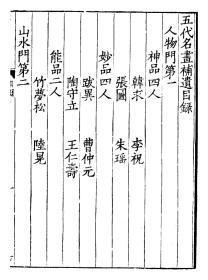 五代名畫補遺目錄
人物門第一
神品四人
韓求 李祝
張圖 朱瑤
妙品四人
跋異 曹仲元
陶守立 王仁壽
能品二人
竹夢松 陸晃
山水門第二